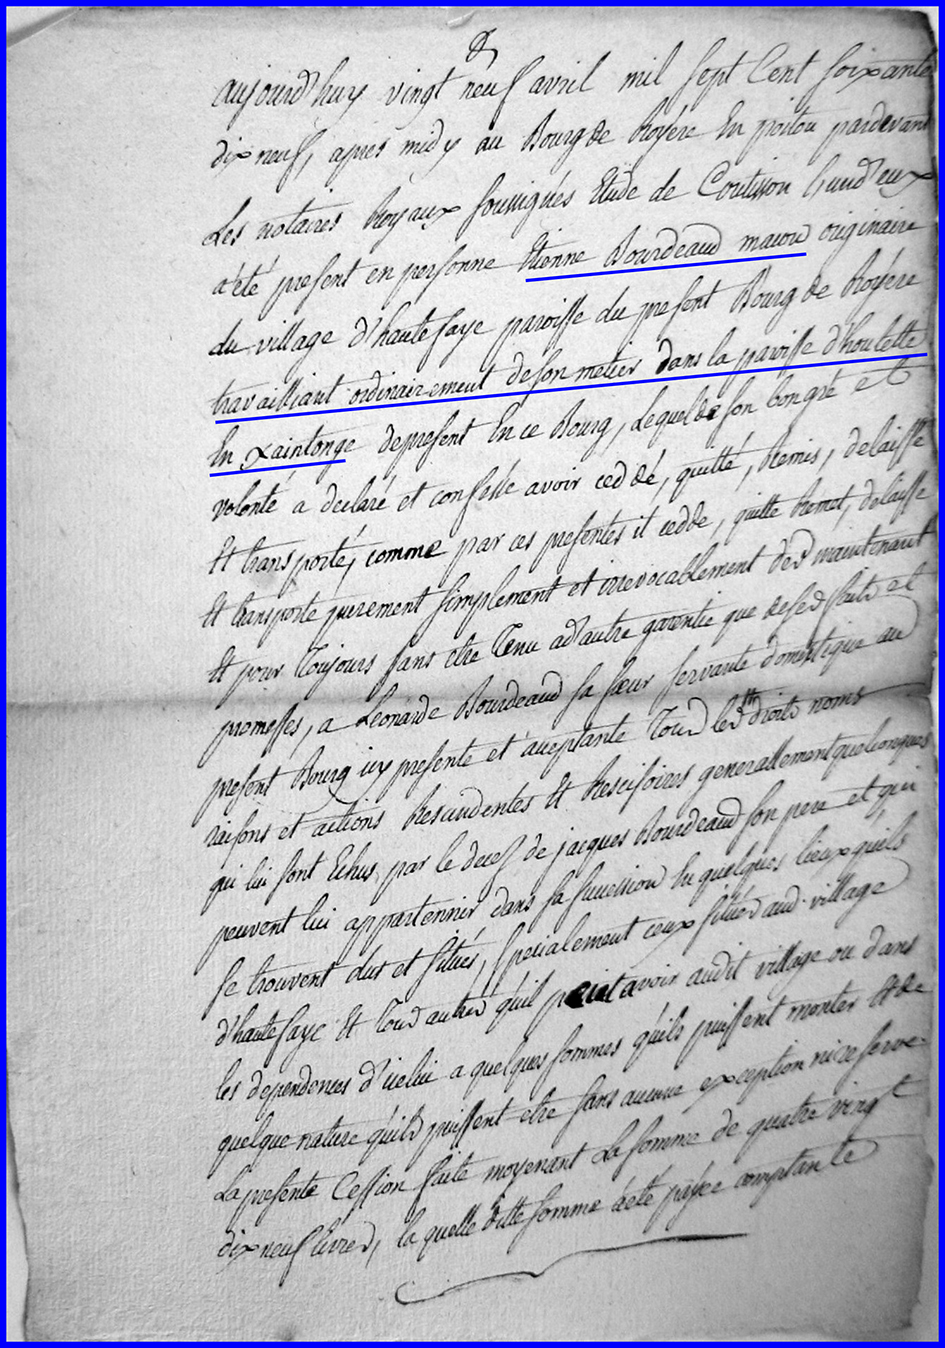 aujourd'huy vingt neuf avril mil sept Cent soixante
dix neuf, apres midy au Bourg de Royére En poitou pardevant
Les notaires Royaux soussignés Etude de Coutisson
a été present en personne Etienne Bourdeaud maçon originaire
du village d'hautefaye paroisse du present Bourg de Royére
travailliant ordinairement de son metier dans la paroisse d'houlette
En xaintonge de present En ce Bourg, Lequel de son bon gré et
volonté a declaré et confessé avoir ceddé, quitté, Remis, delaissé
Et transporté, comme par ces presentes il cedde, quitte Remet, delaisse
Et transporte purement simplement et irrevocablement des maintenant
Et pour Toujours sans etre Tenu ad'autre garentie que de ses faits et
promesses, a Léonarde Bourdeaud sa sœur servante domestique au
present Bourg icy presente et aceptante Tous les droits noms
raisons et actions Rescindentes Et Rescisoires generallement quelconques
qui lui sont Echus, par le decez de jacques Bourdeaud son pere et qui
peuvent lui appartennir dans sa succession En quelques lieux quils
se trouvent dus et situés, specialement ceux situés aud. village
d'hautefaye Et tous autres qu'il peut avoir audit village ou dans
les dependences d'icelui a quelques sommes qu'ils puissent monter Et de
quelque nature qu'ils puissent etre sans aucune exception ni reserve
La presente Cession faite moyenant La somme de quatre vingt
dix neuf Livres, la quelle ditte somme a été payée comptante